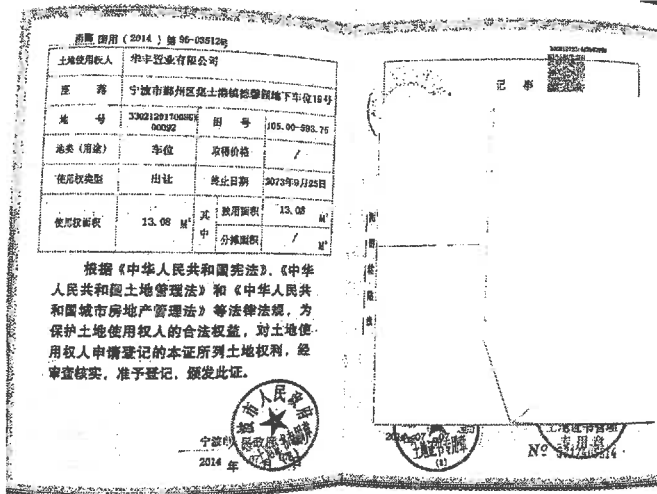 国用（2014）第96-03512号
土地使用权人 华丰置业有限公司
座 落 宁波市鄞州区集士港镇 地下车位19号
地 号 图 号 105.00-593.75
00092
地类（用途） 车位 取得价格 /
使用权类型 出让 终止日期 2073年9月25日
使用权面积 13.08 M² 其中 独用面积 13.08 M²
分摊面积 / M²
根据《中华人民共和国宪法》、《中华
人民共和国土地管理法》和《中华人民共
和国城市房地产管理法》等法律法规，为
保护土地使用权人的合法权益，对土地使
用权人申请登记的本证所列土地权利，经
审查核实，准予登记，颁发此证。
市人民政府
宁波市人民政府
2014 年 月 日
记 事
土地证书管理
专用章
Nº